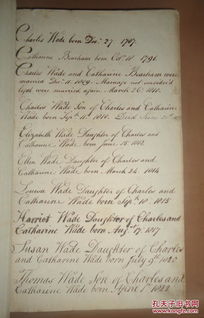 Charles Wade born Dec. 27. 1787.
Catharine Basham born Oct. 10. 1791.
Charles Wade and Catharine Basham were
married Dec. 11. 1809. Marriage not
legal were married again March 26. 1810.
Charles Wade Son of Charles and Catharine
Wade born Sep. 11. 1810.
Elizabeth Wade Daughter of Charles and
Catharine Wade born June 15. 1812.
Ellen Wade Daughter of Charles and
Catharine Wade born March 24. 1814
Louisa Wade Daughter of Charles and
Catharine Wade born Sep. 10. 1815
Harriet Wade Daughter of Charles and
Catharine Wade born Aug. 17. 1817
Susan Wade Daughter of Charles
and Catharine Wade born July 9th 1820
Thomas Wade Son of Charles and
Catharine Wade born April 1. 1823